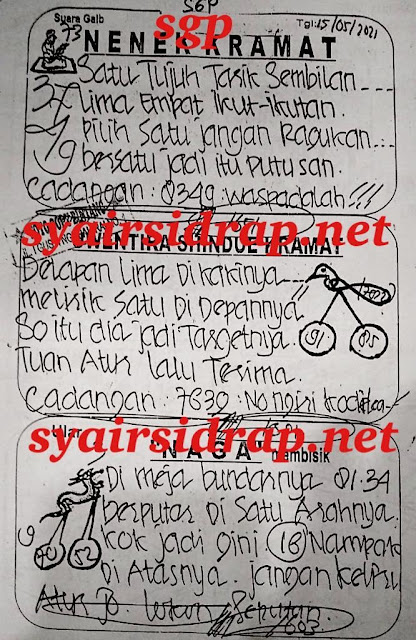 SGP
Suara Gaib
Tgl: 15/05/2021
sgp
73
NENEK KRAMAT
Satu Tujuh Tarik Sembilan
37 Lima Empat Ikut-ikutan.
49 Pilih Satu jangan Ragukan
bersatu jadi itu putusan.
Cadangan: 0349. waspadalah!!!
syairsidrap.net
KRAMAT
Delapan Lima Di kakinya
melisik Satu Di Depannya
So itu dia jadi Targetnya.
Tuan Atur lalu Terima.
91 05
Cadangan: 7630.
syairsidrap.net
Ular
"NAGA" membisik
Di meja bundarnya 01.34
berputar Di Satu Arahnya.
kok jadi gini 16 Nampak
Di Atasnya. jangan keliru
9
52
Atur jo.